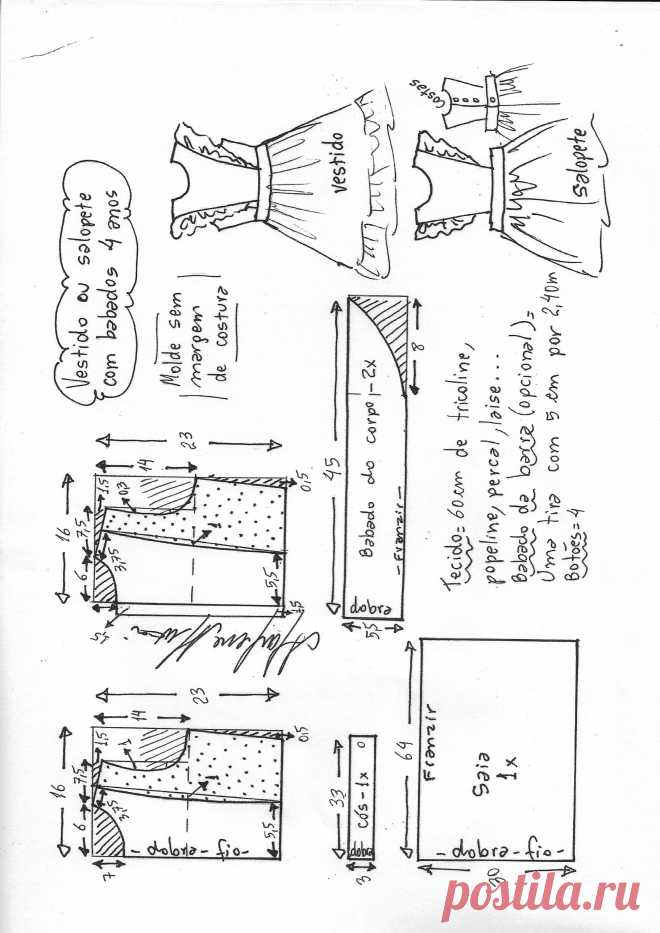 Vestido ou salopete
com babados 4 anos
Molde sem
margem
de costura
vestido
costas
salopete
16
6
7,5
1,5
0,3
14
23
3,75
1
5,5
0,5
1,5
1,5
45
Babado do corpo - 2x
- Franzir -
dobra
5,5
8
Tecido = 60 cm de tricoline,
popeline, percal, laise...
Babado da barra (opcional) =
Uma tira com 5 cm por 2,40m
Botões = 4
16
6
7,5
1,5
1
14
23
7
3,75
1
5,5
0,5
- dobra - fio -
33
cós - 1x
dobra
3
64
Franzir
Saia
1x
- dobra - fio -
30
postila.ru